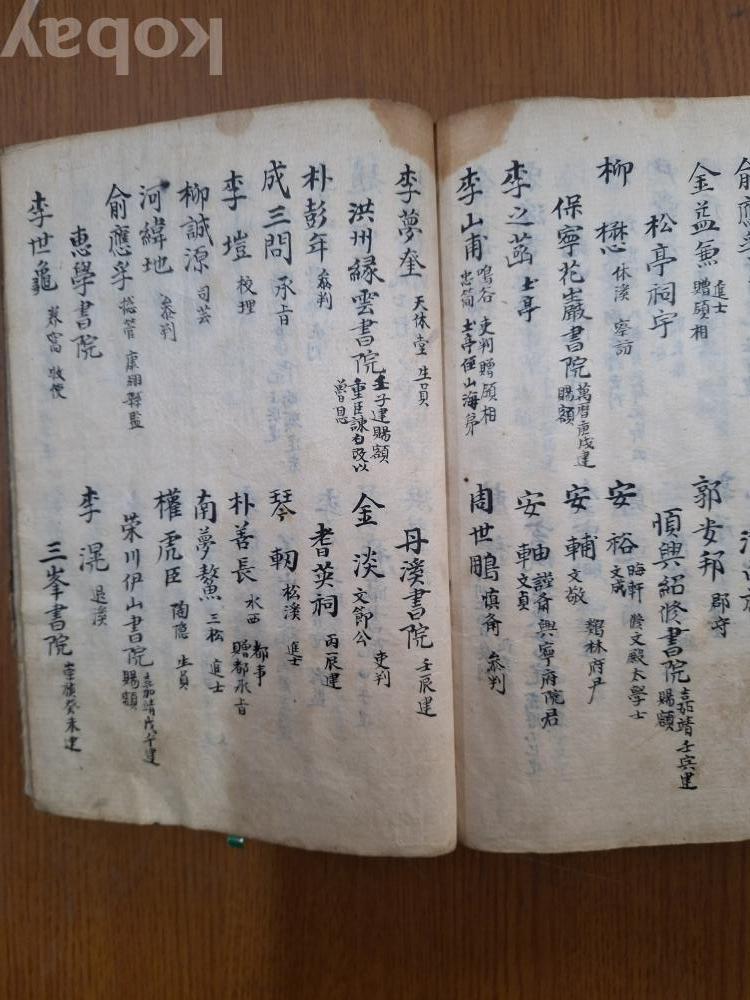 金益兼 進士 贈領相
松亭祠宇
柳懋 休溪 察訪
保寧花巖書院 萬曆庚戌建 賜額
李之菡 土亭
李山甫 鳴谷 吏判贈領相 忠簡 土亭侄山海弟
郭安邦 郡守
順興紹修書院 嘉靖壬寅建 賜額
安裕 晦軒 修文殿太學士 文成
安輔 文敬 雞林府尹
安軸 謹齋 興寧府院君 文貞
周世鵬 愼齋 叅判
李夢奎 天休堂 生員
洪州緑雲書院 壬子建賜額
朴彭年 叅判
成三問 承旨
李塏 校理
柳誠源 司芸
河緯地 叅判
俞應孚 摠管
惠學書院
李世龜 養窩 牧使
丹溪書院 壬辰建
金淡 文節公 吏判
耆英祠 丙辰建
琴軔 松溪 進士
朴善長 水西 都事 贈都承旨
南夢鰲 三松 進士
權虎臣 陶隱 生員
榮川伊山書院 嘉靖戊午建 賜額
李滉 退溪
三峯書院 崇禎癸未建
kobay